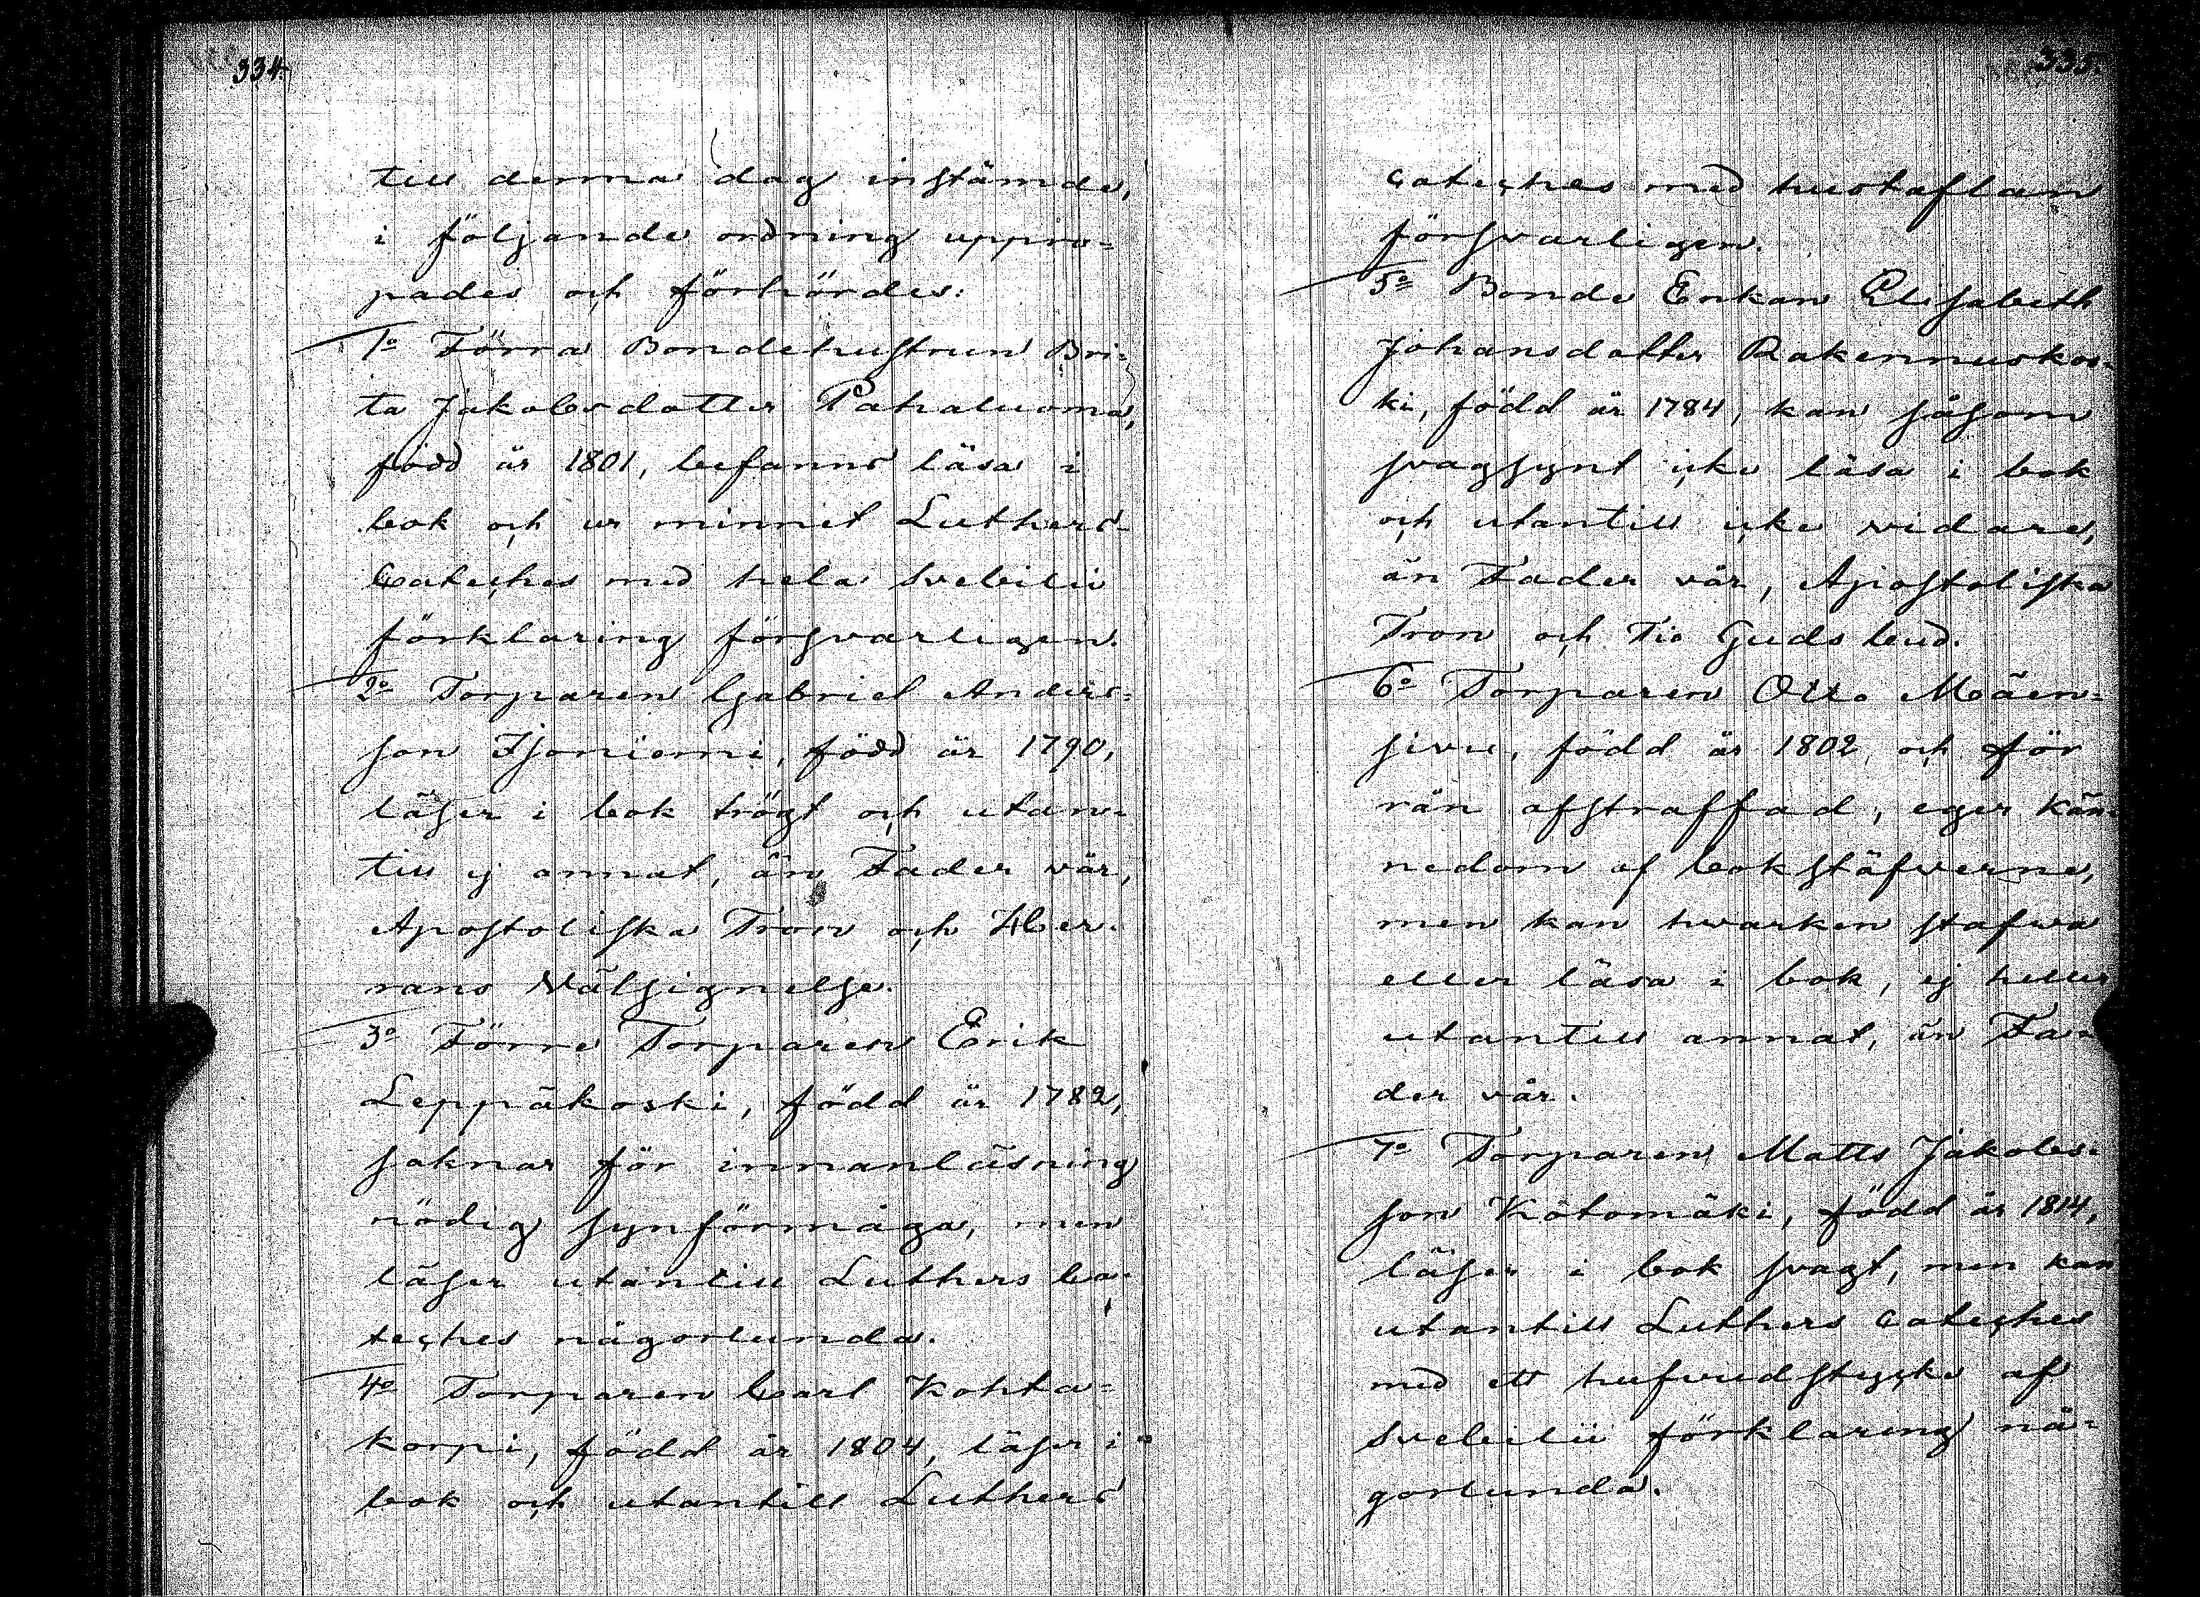 334.
till denna dag instämde,
i följande ordning uppro=
pades och förhördes:
1o Förra Bondehustrun Bri=
ta Jakobsdotter Pahaluoma,
född år 1801, befanns läsa i
bok och ur minnet Luthers
Cateches med hela Svebilii
förklaring försvarligen.
2o Torparen Gabriel Anders=
son Isoniemi, född år 1790,
läser i bok trögt och utan=
till ej annat, än Fader vår,
Apostoliska Tron och Her=
rans Välsignelse.
3o Förre Torparen Erik
Leppäkoski, född år 1782,
saknar för innanläsning
nödig synförmåga, men
läser utantill Luthers Ca=
teches någorlunda.
4o Torparen Carl Kohta=
korpi, född år 1804, läser i
bok och utantill Luthers
335.
Cateches med hustaflan
försvarligen.
5o Bonde Enkan Elisabeth
Johansdotter Rakennuskos=
ki, född år 1784, kan såsom
svagsynt icke läsa i bok
och utantill icke vidare,
än Fader vår, Apostoliska
Tron och Tio Guds bud.
6o Torparen Otto Mäen=
sivu, född år 1802 och för
rån afstraffad, eger kän=
nedom af bokstäfverne,
men kan hvarken stafva
eller läsa i bok, ej heller
utantill annat, än Fa=
der vår.
7o Torparen Matts Jakobs=
son Kötomäki, född år 1814,
läser i bok svagt, men kan
utantill Luthers Cateches
med ett hufvudstycke af
Svebilii förklaring nå=
gorlunda.